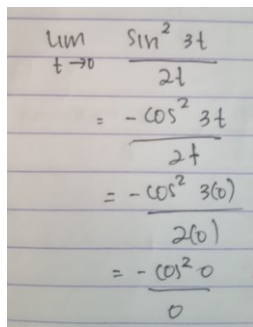 lim sin² 3t
t→0 2t
= - cos² 3t
2t
= - cos² 3(0)
2(0)
= - cos² 0
0